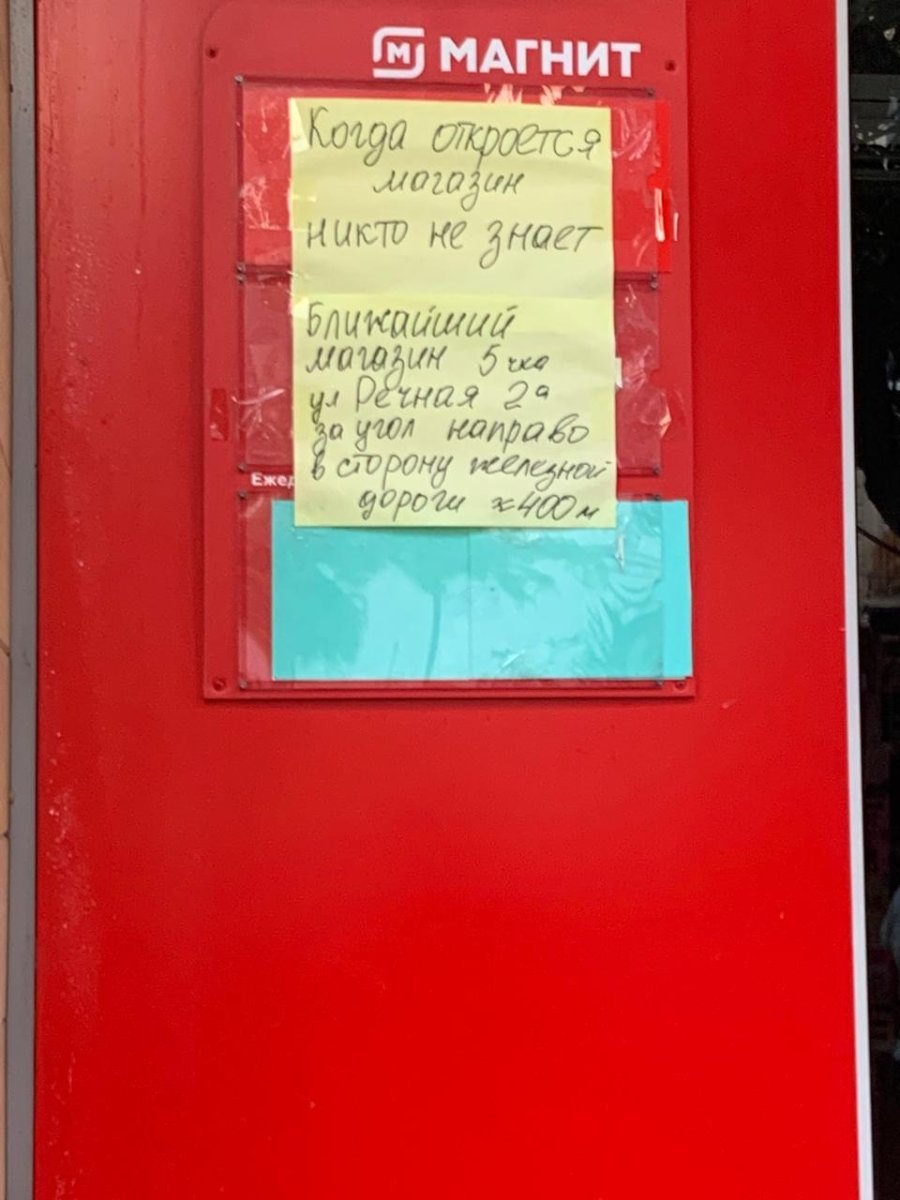 М МАГНИТ
Когда откроется
магазин
никто не знает
Ближайший
магазин 5чка
ул Речная 2а
за угол направо
в сторону железной
дороги ≈400м
Ежед